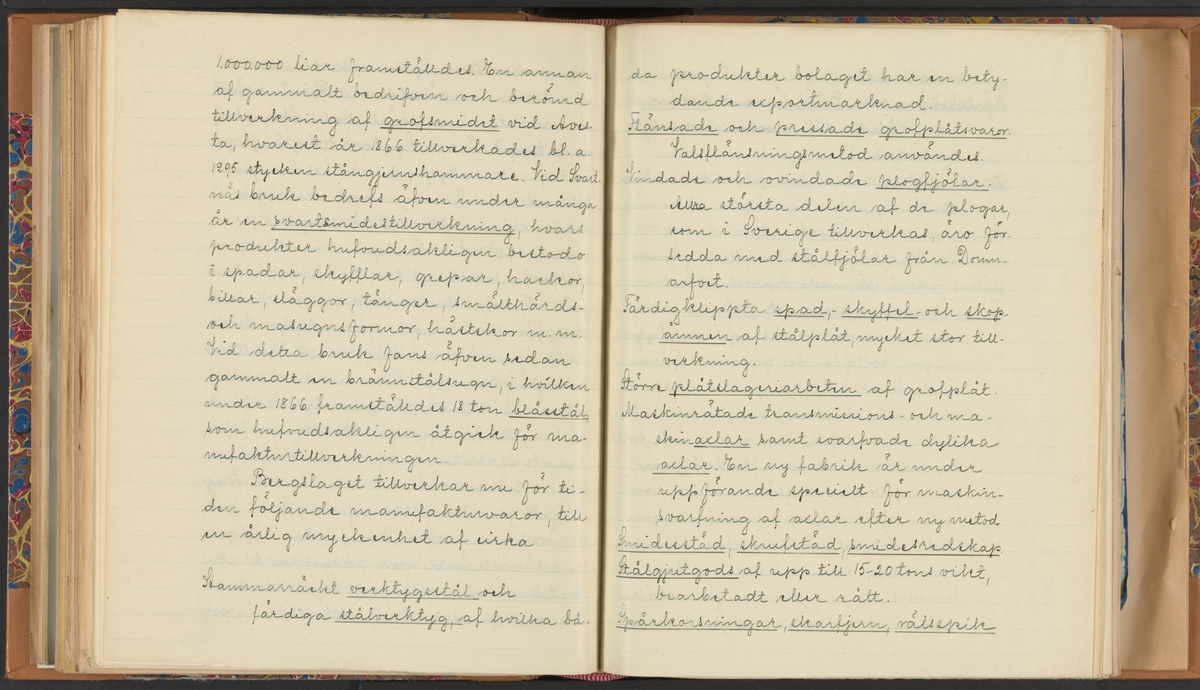 1.000.000 liar framställdes. En annan
af gammalt bedrifven och berömd
tillverkning af grofsmidet vid Aves-
ta, hvarest år 1866 tillverkades bl. a.
1295 stycken stångjernshammare. Vid Svart
näs bruk bedrefs äfven under många
år en svartsmidestillverkning, hvars
produkter hufvudsakligen bestodo
i spadar, skyfflar, grepar, hackor,
billar, släggor, tänger, smälthärds-
och masugnsformor, hästskor m. m.
Vid detta bruk fans äfven sedan
gammalt en brännstålsugn, i hvilken
under 1866 framställdes 18 ton blåsstål,
som hufvudsakligen åtgick för ma-
nufakturtillverkningen.
Bergslaget tillverkar nu för ti-
den följande manufakturvaror, till
en årlig myckenhet af cirka
Hammarräckt verktygsstål och
färdiga stålverktyg, af hvilka bå-
da produkter bolaget har en bety-
dande exportmarknad.
Flänsade och pressade grofplåtsvaror.
Valsflänsningsmetod användes.
Vindade och ovindade plogfjölar.
Allra största delen af de plogar,
som i Sverige tillverkas, äro för-
sedda med stålfjölar från Domn-
arfvet.
Färdigklippta spad,- skyffel- och skop-
ämnen af stålplåt, mycket stor till-
verkning.
Större plåtslageriarbeten af grofplåt.
Maskinrätade transmissions- och ma-
skinaxlar samt svarfvade dylika
axlar. En ny fabrik är under
uppförande specielt för maskin-
svarfning af axlar efter ny metod
Smidesstäd, skrufstäd, smidesredskap
Stålgjutgods af upp till 15-20 tons vikt,
bearbetadt eller rått.
Spårkorsningar, skarfjern, rälsspik